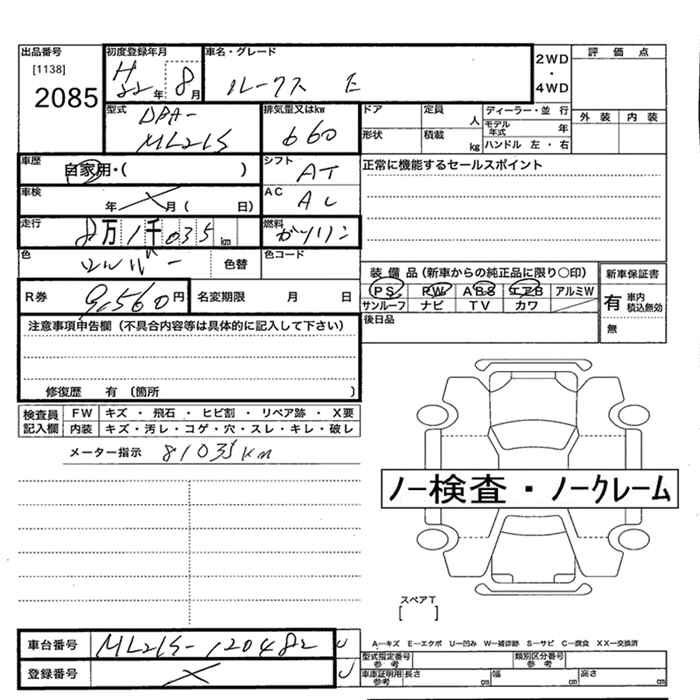 出品番号
[1138]
2085
初度登録年月
H22年 8月
車名・グレード
ルークス E
2WD
・
4WD
評価点
外装 内装
型式
DBA-
ML21S
排気量又はkw
660
ドア
定員
人
ディーラー・並行
形状
積載
kg
モデル年式
年
ハンドル 左・右
車歴
自家用・( )
シフト
AT
正常に機能するセールスポイント
車検
年 月( 日)
AC
AC
走行
8万1千035km
燃料
ガソリン
色
シルバー
色替
色コード
装備品(新車からの純正品に限り○印)
新車保証書
PS PW ABS エアB アルミW
サンルーフ ナビ TV カワ
有 車内積込無効
無
R券
9,560円
名変期限 月 日
後日品
注意事項申告欄(不具合内容等は具体的に記入して下さい)
修復歴 有(箇所 )
検査員記入欄
FW キズ・飛石・ヒビ割・リペア跡・X要
内装 キズ・汚レ・コゲ・穴・スレ・キレ・破レ
メーター指示 81035km
ノー検査・ノークレーム
スペアT
[ ]
車台番号 ML21S-120482
登録番号
A―キズ E―エクボ U―凹み W―補修跡 S―サビ C―腐食 XX―交換済
型式指定番号 参考
類別区分番号 参考
車庫証明用 参考
長さ cm 幅 cm 高さ cm